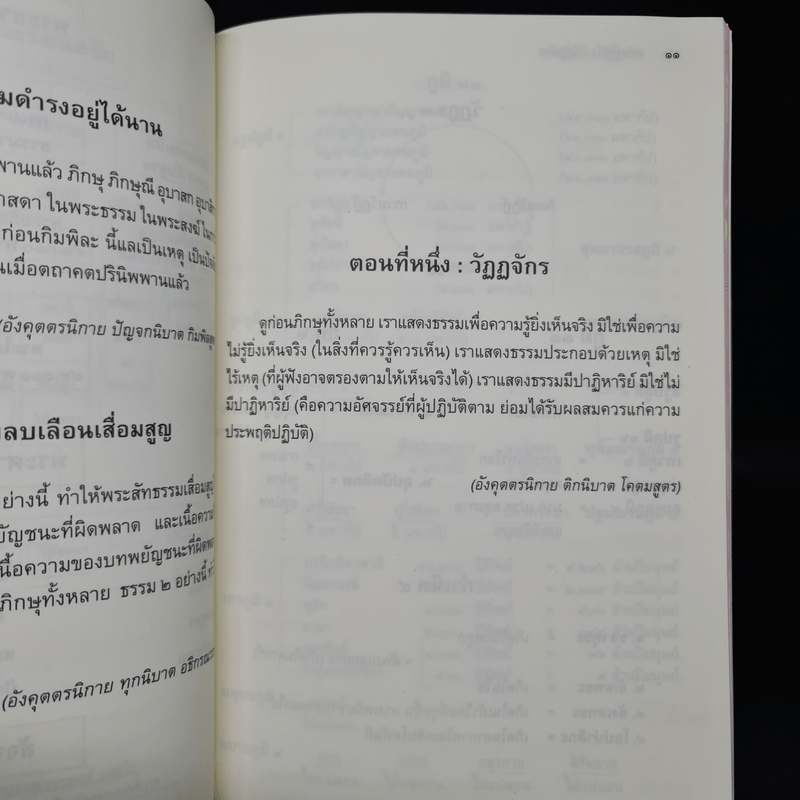 มดำรงอยู่ได้นาน
พานแล้ว ภิกษุ ภิกษุณี อุบาสก
าสดา ในพระธรรม ในพระสงฆ์
ก่อนกิมพิละ นี้แลเป็นเหตุ
นเมื่อตถาคตปรินิพพานแล้ว
(อังคุตตรนิกาย ปัญจกนิบาต
ลบเลือนเสื่อมสูญ
อย่างนี้ ทำให้พระสัทธรรมเสื่อมสูญ
ยัญชนะที่ผิดพลาด และเนื้อความ
นื้อความของบทพยัญชนะที่ผิดพล
ภิกษุทั้งหลาย ธรรม ๒ อย่างนี้
(อังคุตตรนิกาย ทุกนิบาต
๑๑
ตอนที่หนึ่ง : วัฏฏจักร
ดูก่อนภิกษุทั้งหลาย เราแสดงธรรมเพื่อความรู้ยิ่งเห็นจริง มิใช่เพื่อความ
ไม่รู้ยิ่งเห็นจริง (ในสิ่งที่ควรรู้ควรเห็น) เราแสดงธรรมประกอบด้วยเหตุ มิใช่
ไร้เหตุ (ที่ผู้ฟังอาจตรองตามให้เห็นจริงได้) เราแสดงธรรมมีปาฏิหาริย์ มิใช่ไม่
มีปาฏิหาริย์ (คือความอัศจรรย์ที่ผู้ปฏิบัติตาม ย่อมได้รับผลสมควรแก่ความ
ประพฤติปฏิบัติ)
(อังคุตตรนิกาย ติกนิบาต โคตมสูตร)